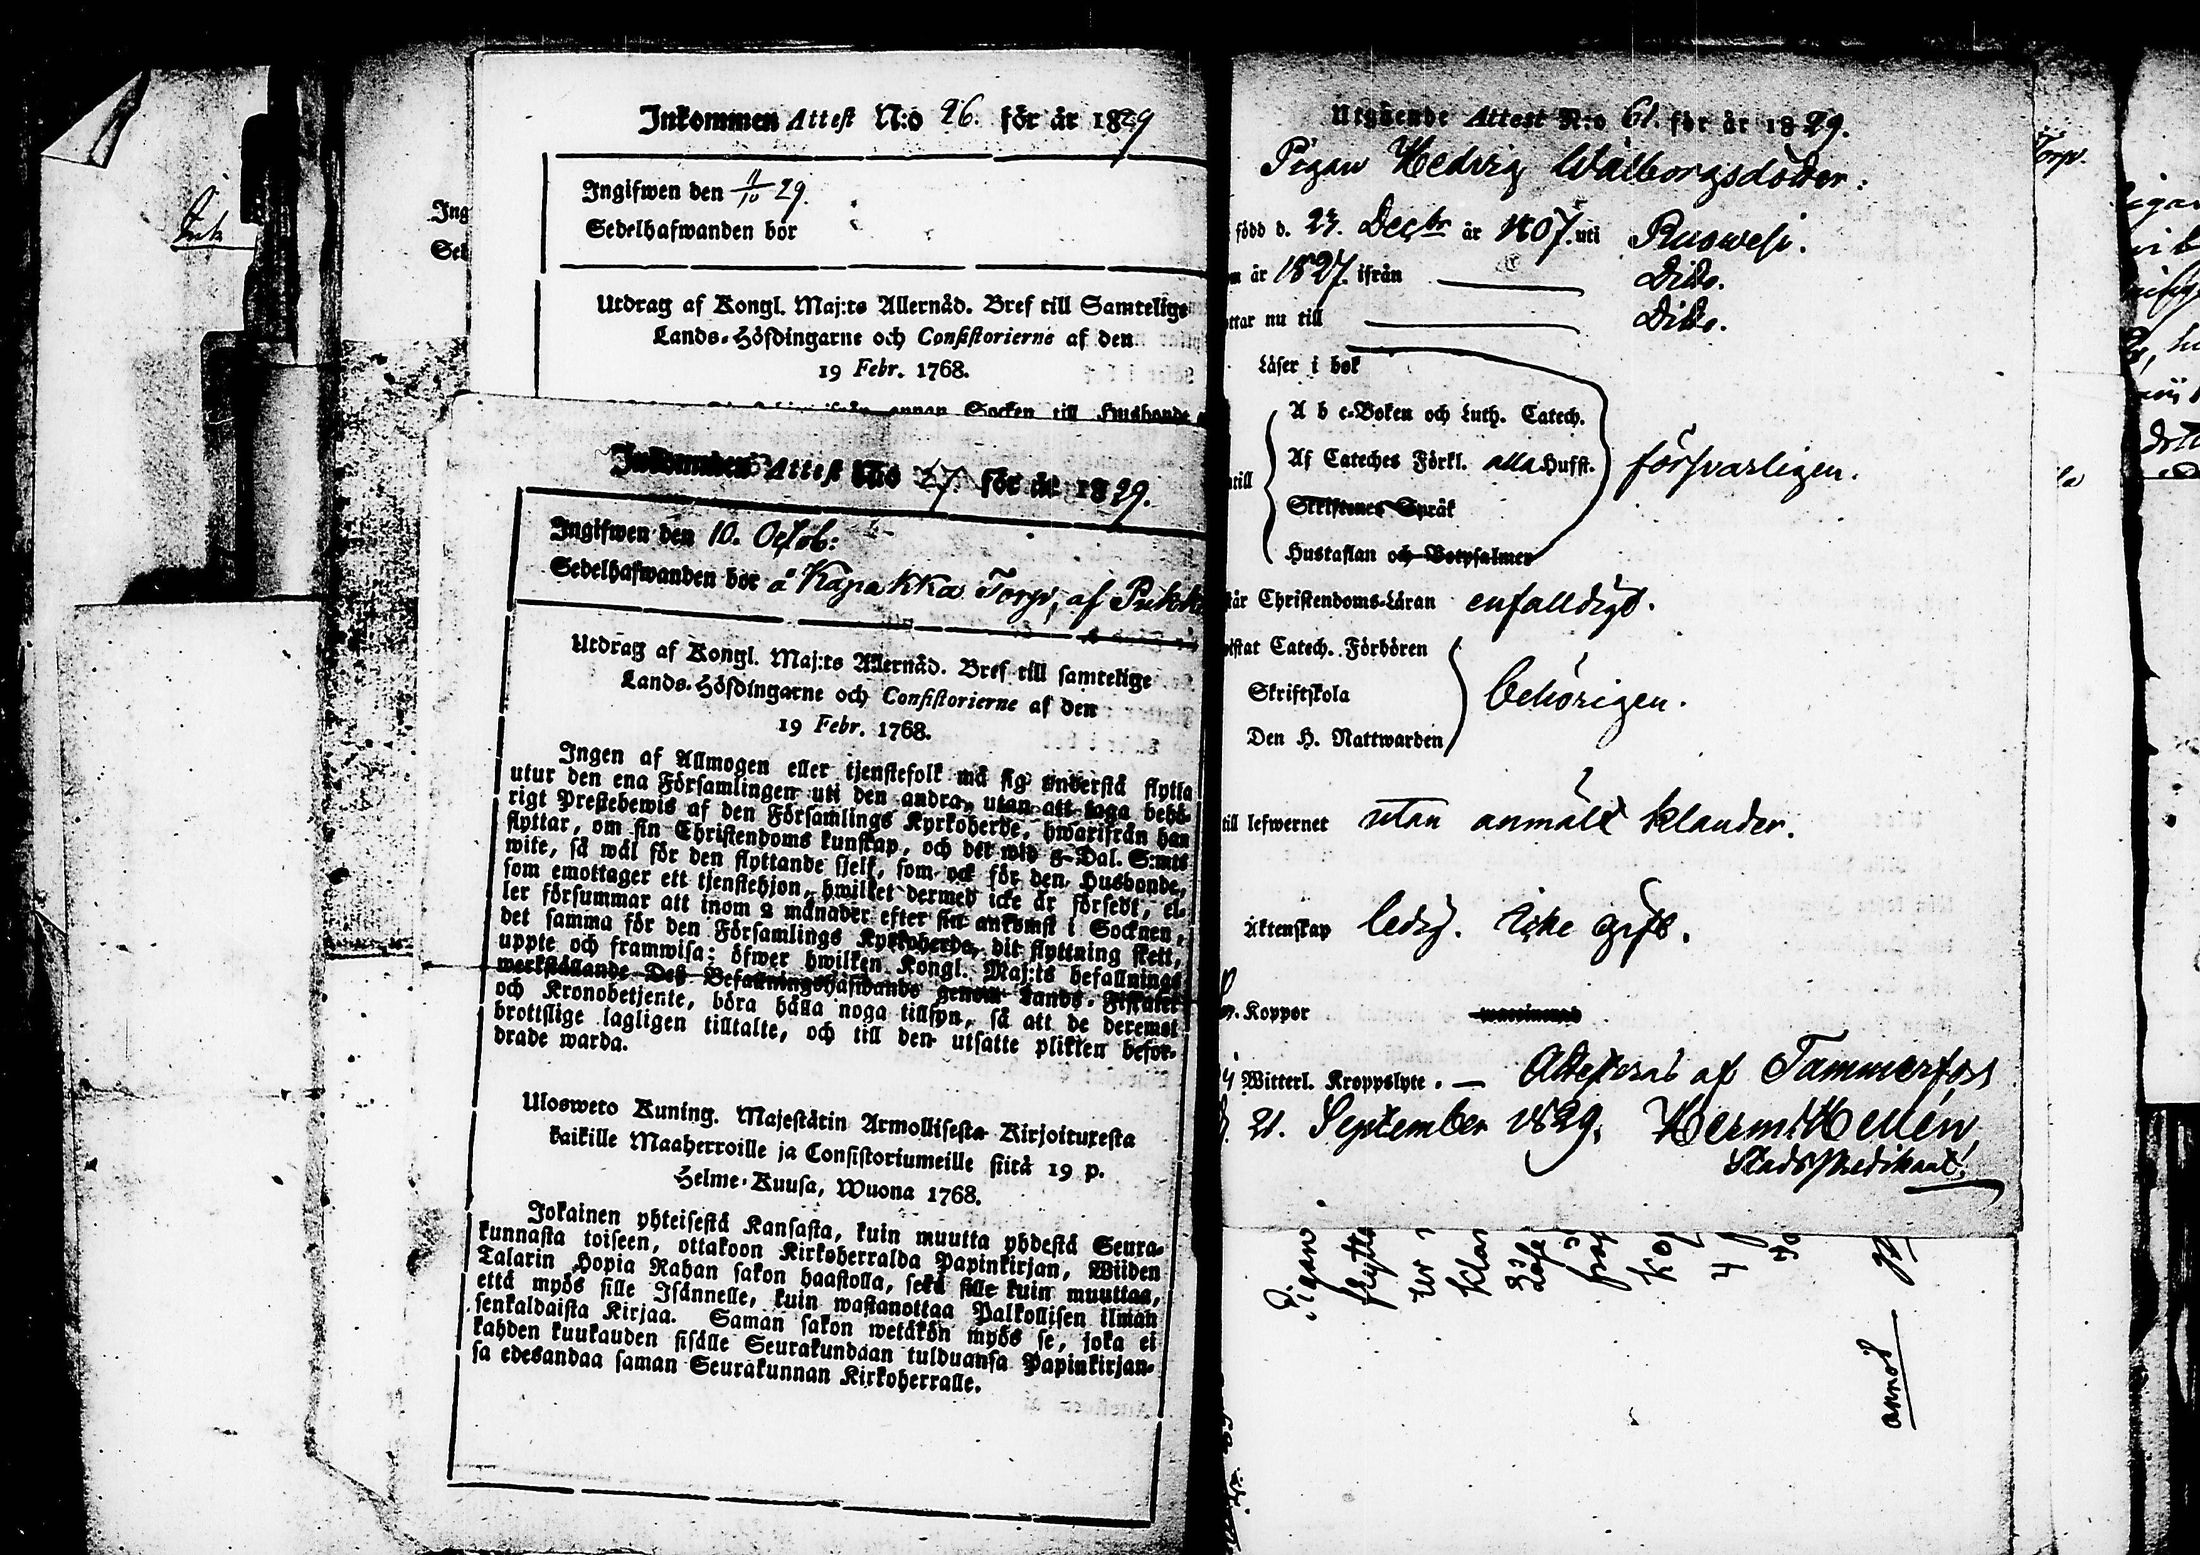 Inkommen Attest N:o 26. för år 1829
Ingifwen den 11/10 29.
Sedelhafwanden bor
Utdrag af Kongl. Maj:ts Allernåd. Bref till Samtelige
Lands-Höfdingarne och Consistorierne af den
19 Febr. 1768.
annan Socken till Husbonde
Inkommen Attest N:o 27. för år 1829.
Ingifwen den 10. Octob:
Sedelhafwanden bor å Kapakka Torp, af Pukk
Utdrag af Kongl. Maj:ts Allernåd. Bref till samtelige
Lands-Höfdingarne och Consistorierne af den
19 Febr. 1768.
Ingen af Allmogen eller tjenstefolk må sig understå flytta
utur den ena Församlingen uti den andra, utan att taga behö-
rigt Prestebewis af den Församlings Kyrkoherde, hwarifrån han
flyttar, om sin Christendoms kunskap, och det wid 5 Dal. S:mts
wite, så wäl för den flyttande sjelf, som ock för den Husbonde,
som emottager ett tjenstehjon, hwilket dermed icke är försedt, el-
ler försummar att inom 2 månader efter sin ankomst i Socknen,
det samma för den Församlings Kyrkoherde, dit flyttning skett,
uppte och framwisa; öfwer hwilken Kongl. Maj:ts befallnings
werkställande Deß Befallningshafwande genom Lands-Fiskaler
och Kronobetjente, böra hålla noga tillsyn, så att de deremot
brottslige lagligen tilltalte, och till den utsatte plikten befor-
drade warda.
Ulosweto Kuning. Majestätin Armollisesta Kirjoituxesta
kaikille Maaherroille ja Consistoriumeille siitä 19 p.
Helme-Kuusa, Wuona 1768.
Jokainen yhteisestä Kansasta, kuin muutta yhdestä Seura-
kunnasta toiseen, ottakoon Kirkoherralda Papinkirjan, Wiiden
Talarin Hopia Rahan sakon haastolla, sekä sille kuin muuttaa,
että myös sille Isännelle, kuin wastanottaa Palkollisen ilman
senkaldaista Kirjaa. Saman sakon wetäkön myös se, joka ei
kahden kuukauden sisälle Seurakundaan tulduansa Papinkirjan-
sa edesandaa saman Seurakunnan Kirkoherralle.
Utgående Attest N:o 61. för år 1829.
Pigan Hedvig Walborgsdotter:
född d. 23. Decbr år 1807. uti Ruowesi.
år 1827. ifrån Dito.
ttar nu till Dito.
Läser i bok
A b c-Boken och Luth. Catech.
till Af Cateches Förkl. alla Hufst. försvarligen.
Skriftenes Språk
Hustaflan och Botpsalmer
tår Christendoms-Läran enfalldigt.
wistat Catech. Förhören
Skriftskola behörigen.
Den H. Nattwarden
till lefwernet utan anmält klander.
Äktenskap ledig. Icke gift.
Koppor
Witterl. Kroppslyte. — Attesteras af Tammerfors
d. 21. September 1829. Herm: Hellén,